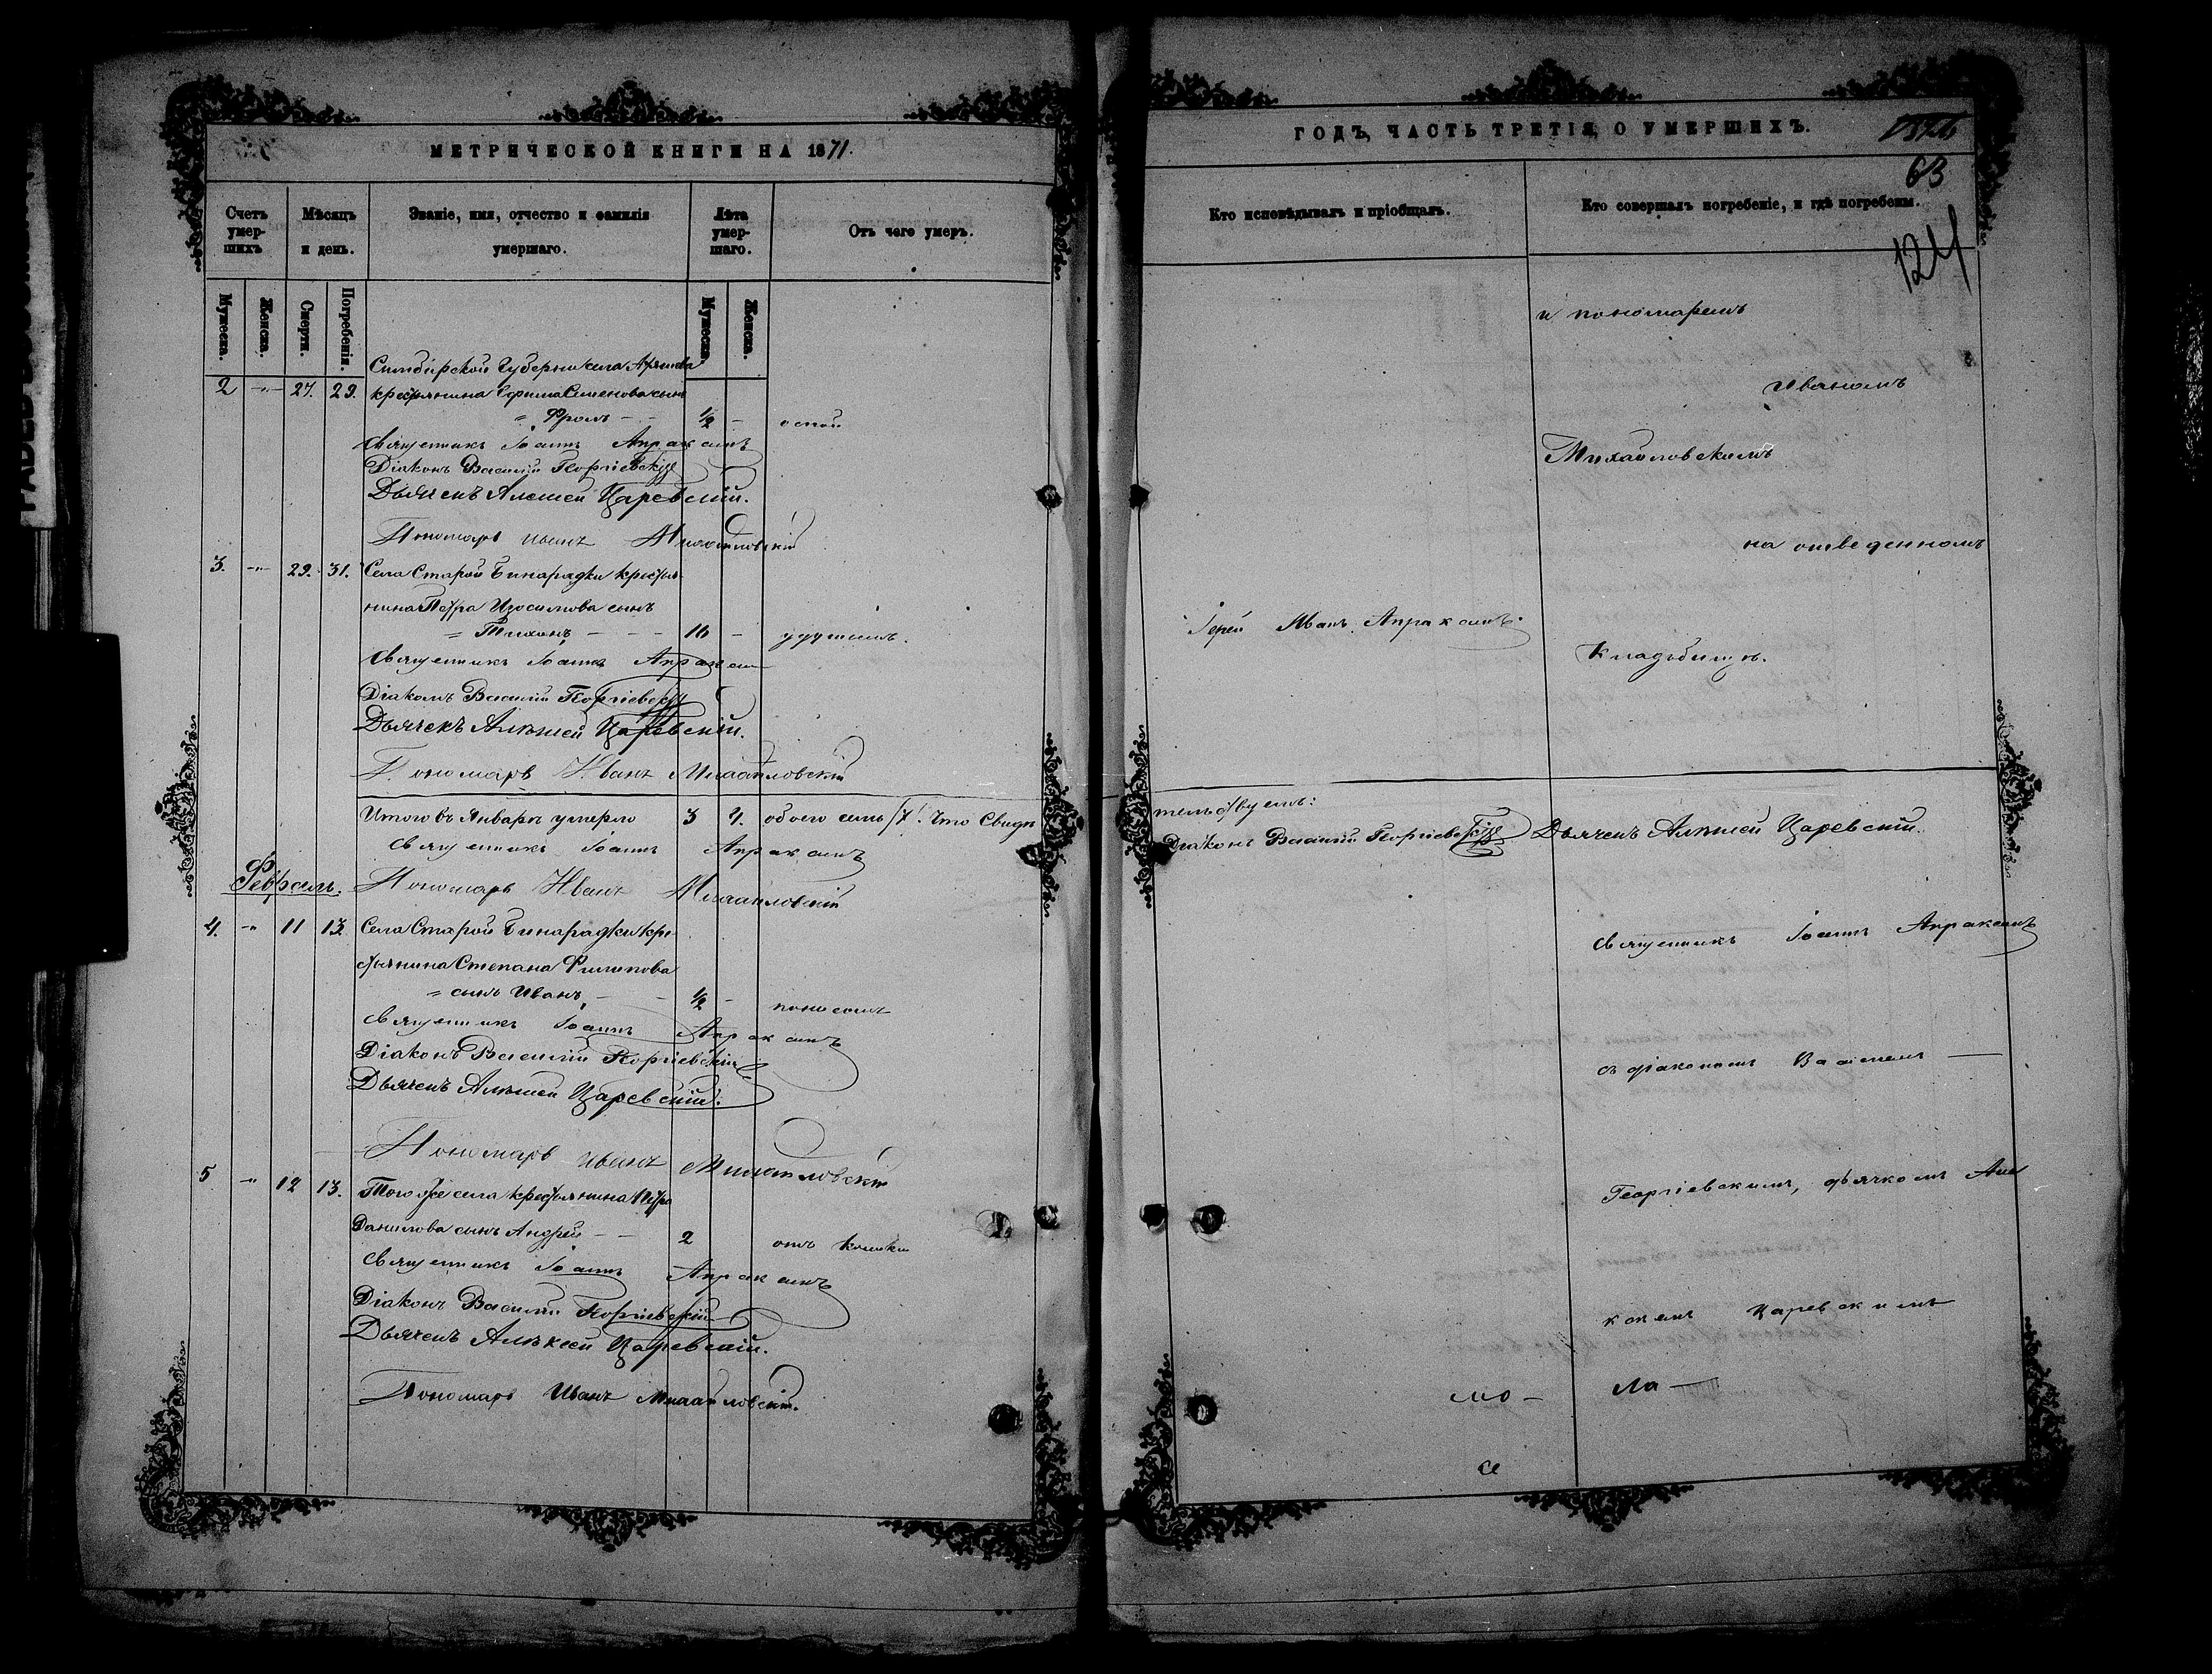 МЕТРИЧЕСКОЙ КНИГИ НА 1871.
Счетъ умер- шихъ
Мѣсяцъ и день.
Званіе, имя, отчество и фамилія умершаго.
Лѣта умер- шаго.
Отъ чего умеръ.
Мужеска.
Женска.
Смерти.
Погребенія.
Мужеска.
Женска.
Симбирской Губерніи села
2 -"- 27. 29. крестьянина Ефима Семенова сынъ
" Фролъ - - 1/2 - оспой
Священникъ Іоаннъ Апраксинъ
Діаконъ Василій Георгіевскій
Дьячекъ Алексей Царевскій.
Пономарь Иванъ Михайловскій
3. -"- 29. 31. Села Старой Бинарадки крестья-
нина Петра Изосимова сынъ
" Тихонъ - - - 16 - удушьемъ.
Священникъ Іоаннъ Апраксинъ
Діаконъ Василій Георгіевскій
Дьячекъ Алѣксей Царевскій.
Пономарь Иванъ Михайловскій
Итого въ Январѣ умерло 3 4. обоего семь /7/. Что Свидѣ
Священникъ Іоаннъ Апраксинъ
Февраль. Пономарь Иванъ Михайловскій
4. -"- 11 13. Села Старой Бинарадки кре-
стьянина Степана Филипова
" сынъ Иванъ - - 1/2 - поносомъ
Священникъ Іоаннъ Апраксинъ
Діаконъ Василій Георгіевскій
Дьячекъ Алѣксей Царевскій.
Пономарь Иванъ Михайловскій
5 -"- 12 13. Того же села крестьянина Петра
Данилова сынъ Андрей - - 2 отъ
Священникъ Іоаннъ Апраксинъ
Діаконъ Василій Георгіевскій
Дьячекъ Алѣксей Царевскій.
Пономарь Иванъ Михайловскій.
ГОДЪ, ЧАСТЬ ТРЕТІЯ, О УМЕРШИХЪ.
63
124
Кто исповѣдывалъ и пріобщалъ.
Кто совершалъ погребеніе, и гдѣ погребены.
и пономаремъ
Иваномъ
Михайловскимъ
на отведенномъ
Іерей Иванъ Апраксинъ.
Кладбищѣ.
тельствуемъ:
Діаконъ Василій Георгіевскій Дьячекъ Алѣксей Царевскій.
Священникъ Іоаннъ Апраксинъ
съ діакономъ Василіемъ —
Георгіевскимъ, дьячкомъ Але
ксѣемъ Царевскимъ
мо — ла —